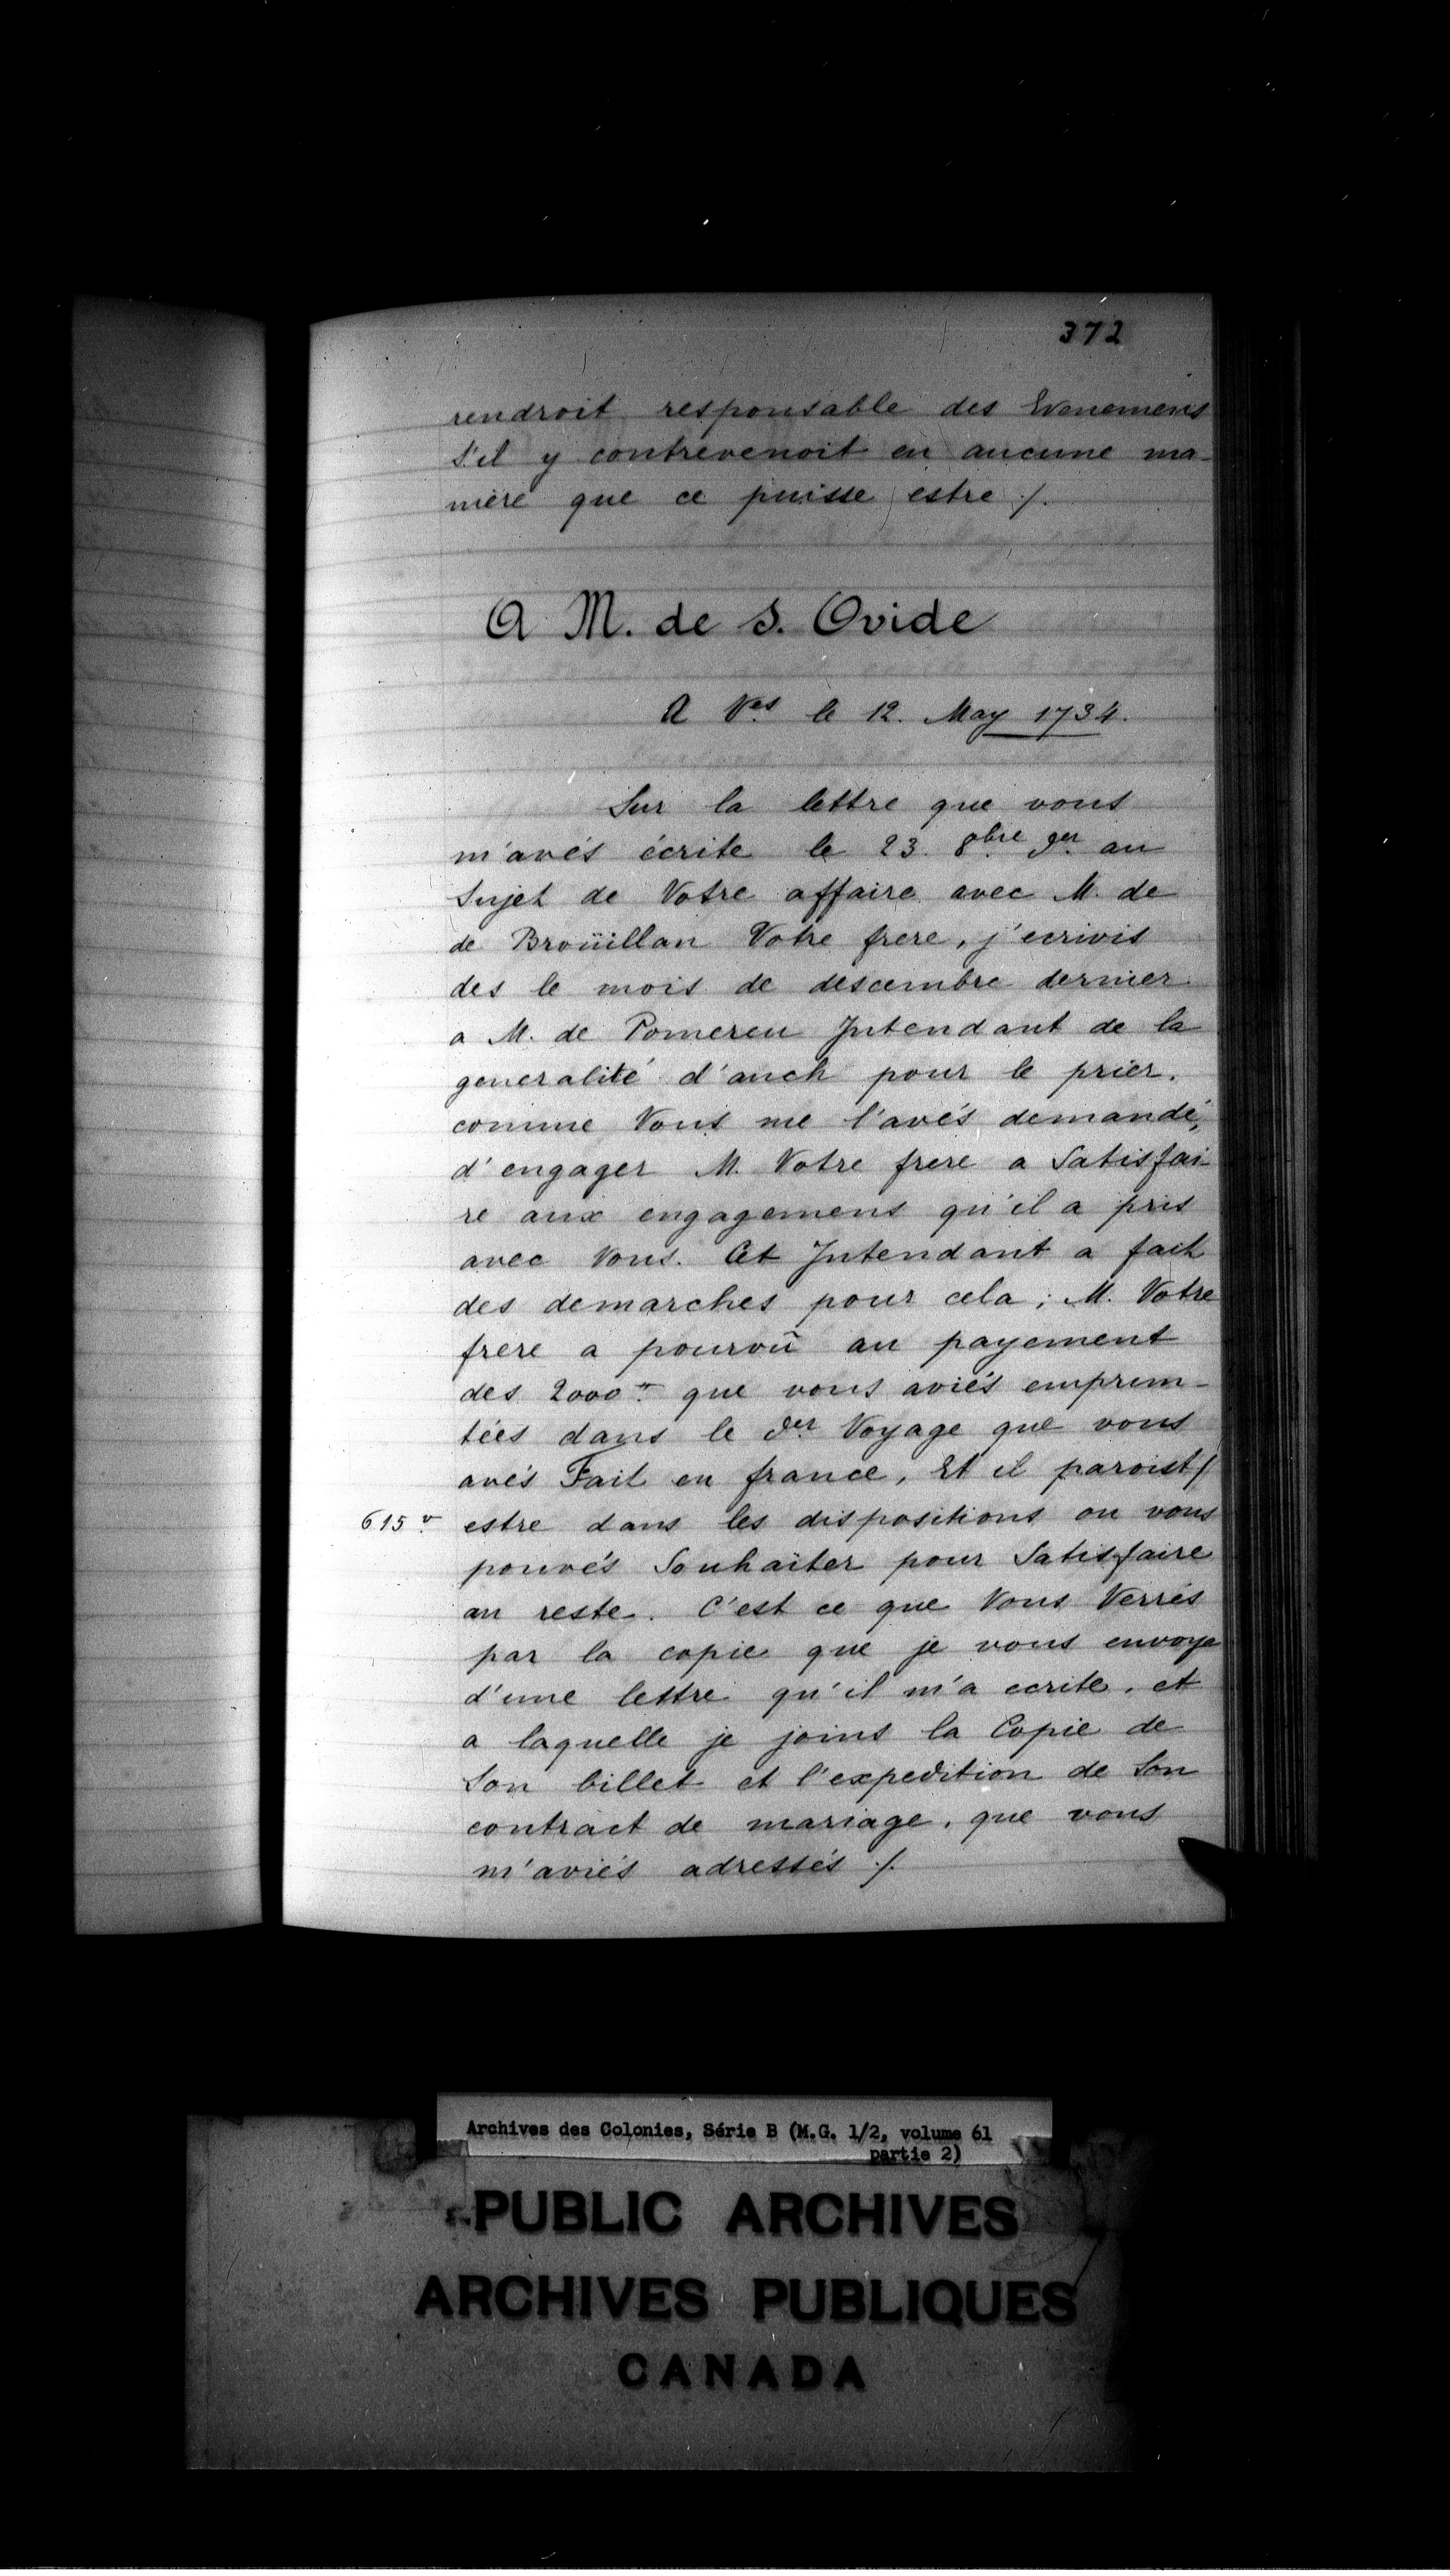 372
rendroit responsable des Evenemens
s'il y contrevenoit en aucune ma-
niere que ce puisse estre ./.
A M. de S. Ovide
A Ves le 12. May 1734.
Sur la lettre que vous
m'avés écrite le 23. 8bre der au
Sujet de Votre affaire avec M. de
de Broüillan Votre frere, j'ecrivis
des le mois de descembre dernier
a M. de Pomereu Intendant de la
generalité d'auch pour le prier,
comme Vous me l'avés demandé,
d'engager M. Votre frere a Satisfai
re aux engagemens qu'il a pris
avec Vous. Cet Intendant a fait
des demarches pour cela; M. Votre
frere a pourvû au payement
des 2000 ₶ que vous aviés emprem-
tées dans le der Voyage que vous
avés Fait en france, Et il paroist/
615 v. estre dans les dispositions ou vous
pouvés Souhaiter pour Satisfaire
au reste. C'est ce que Vous Verrés
par la copie que je vous envoye
d'une lettre qu'il m'a ecrite, et
a laquelle je joins la Copie de
Son billet et l'expedition de Son
contract de mariage, que vous
m'aviés adressés ./.
Archives des Colonies, Série B (M.G. 1/2, volume 61
partie 2)
PUBLIC ARCHIVES
ARCHIVES PUBLIQUES
CANADA